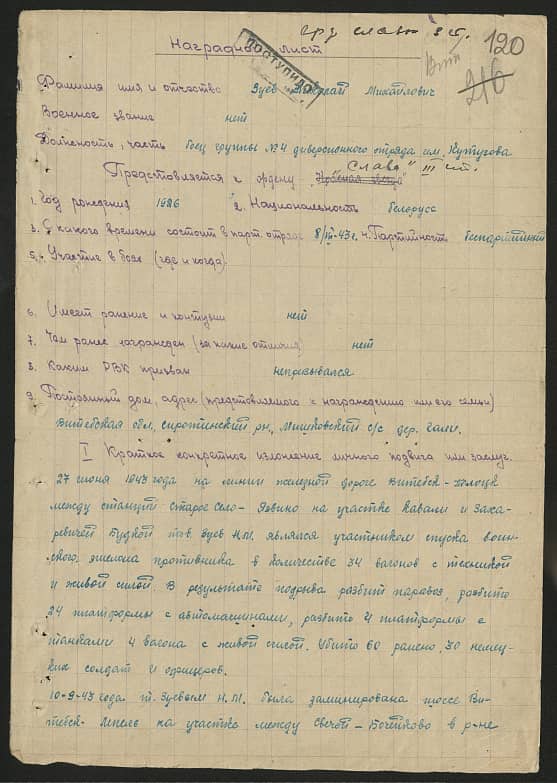 орд слава 3 ст.
120
216
Наградной лист
ПОСТУПИЛО
Фамилия имя и отчество Зуев Николай Михайлович
Военное звание нет
Должность, часть боец группы №4 диверсионного отряда им. Кутузова
Представляется к ордену "Красная звезда" "Слава" III ст.
1. Год рождения 1926 2. Национальность белорусс
3. С какого времени состоит в парт. отряде 8/III-43г. 4. Партийность беспартийный
5. Участие в боях (где и когда)
6. Имеет ранение и контузии нет
7. Чем ранее награжден (за какие отличия) нет
8. Каким РВК призван непризывался
9. Постоянный дом. адрес (представляемого к награждению или его семьи)
Витебская обл. сиротинский рн, Мишковский с/с дер. Гали.
I Краткое конкретное изложение личного подвига или заслуг.
27 июня 1943 года на линии железной дороге Витебск-Полоцк
между станций старое село - Язвино на участке Кавали и Заха-
ревичей Будкой тов. Зуев Н.М. являлся участником спуска воин-
ского эшелона противника в количестве 34 вагонов с техникой
и живой силой. В результате подрыва разбит паровоз, разбито
24 платформы с автомашинами, разбито 4 платформы с
танками 4 вагона с живой силой. Убито 60 ранено 30 немец-
ких солдат и офицеров.
10-9-43 года т. Зуевым Н.М. была заминирована шоссе Ви-
тебск-Лепель на участке между Свечой - Бочейково в р-не